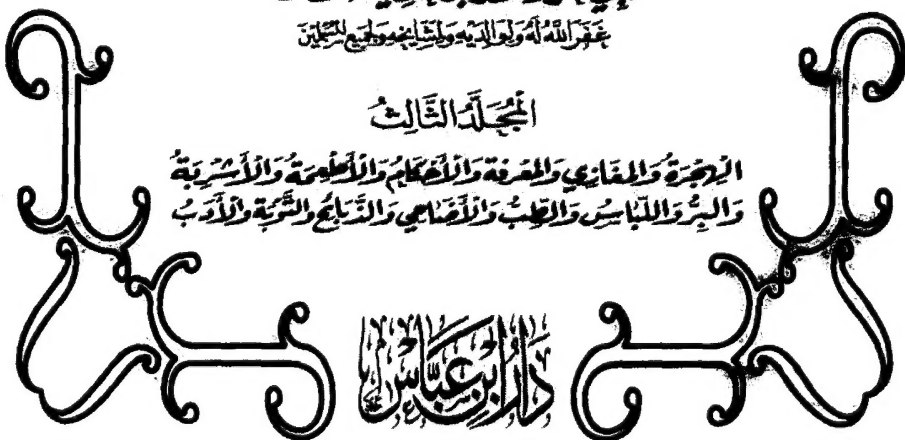 غَفَرَ اللَّهُ لَهُ وَلِوَالِدَيْهِ وَلِمَشَايِخِهِ وَلِجَمِيعِ الْمُسْلِمِينَ
الْمُجَلَّدُ الثَّالِثُ
الْهِجْرَةُ وَالْمَغَازِي وَالْمَعْرِفَة وَالْأَحْكَامُ وَالْأَطْعِمَةُ وَالْأَشْرِبَةُ
وَالْبِرُّ وَاللِّبَاسُ وَالطِّبُّ وَالْأَضَاحِي وَالذَّبَائِحُ وَالتَّوْبَة وَالْأَدَبُ
دَارُ ابْنِ عَبَّاسٍ